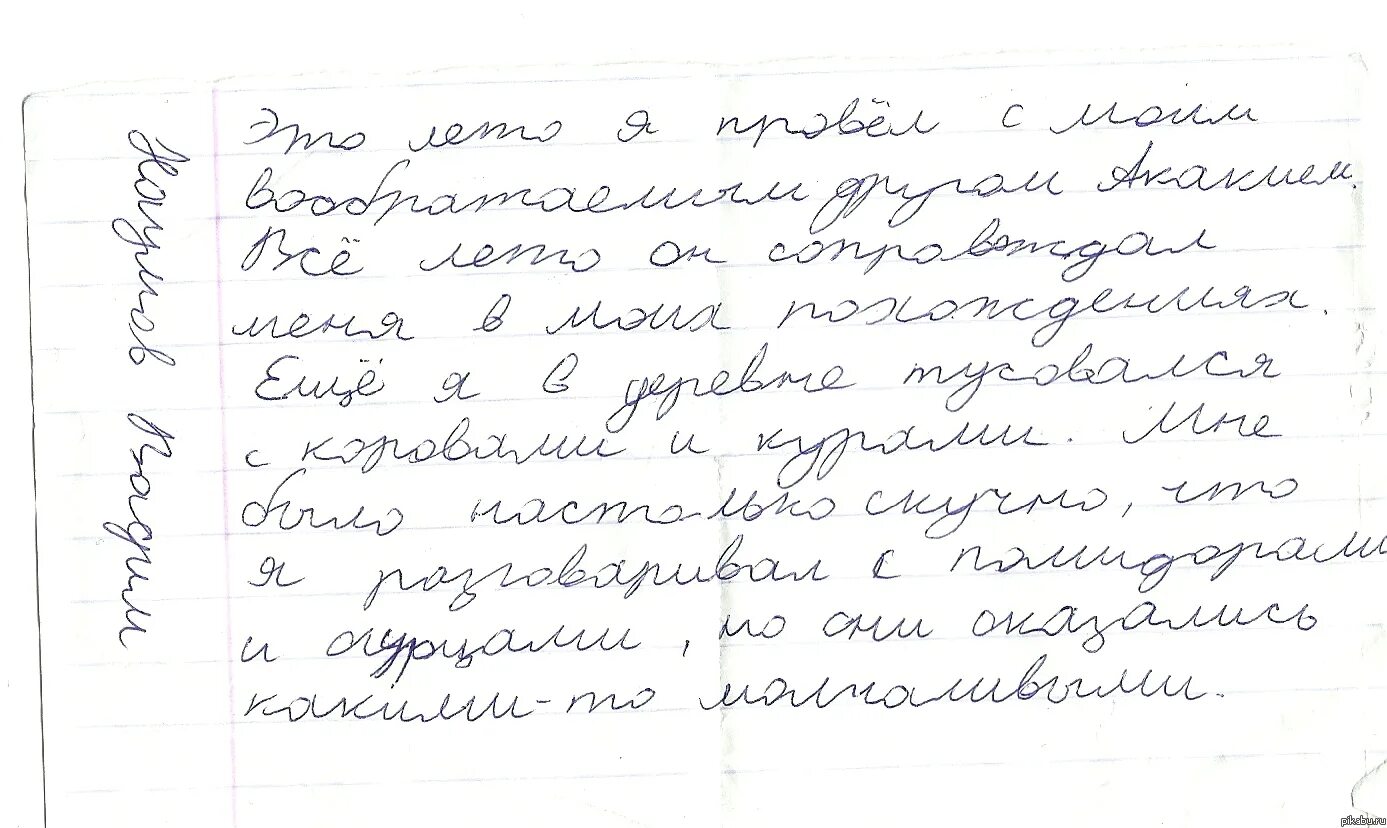 Наумов Вадим
Это лето я провёл с моим
воображаемым другом Акакием.
Всё лето он сопровждал
меня в моих похождениях.
Ещё я в деревне тусовался
с коровами и курами. Мне
было настолько скучно, что
я разговаривал с помидорами
и огурцами, но они оказались
какими-то молчаливыми.
pikabu.ru